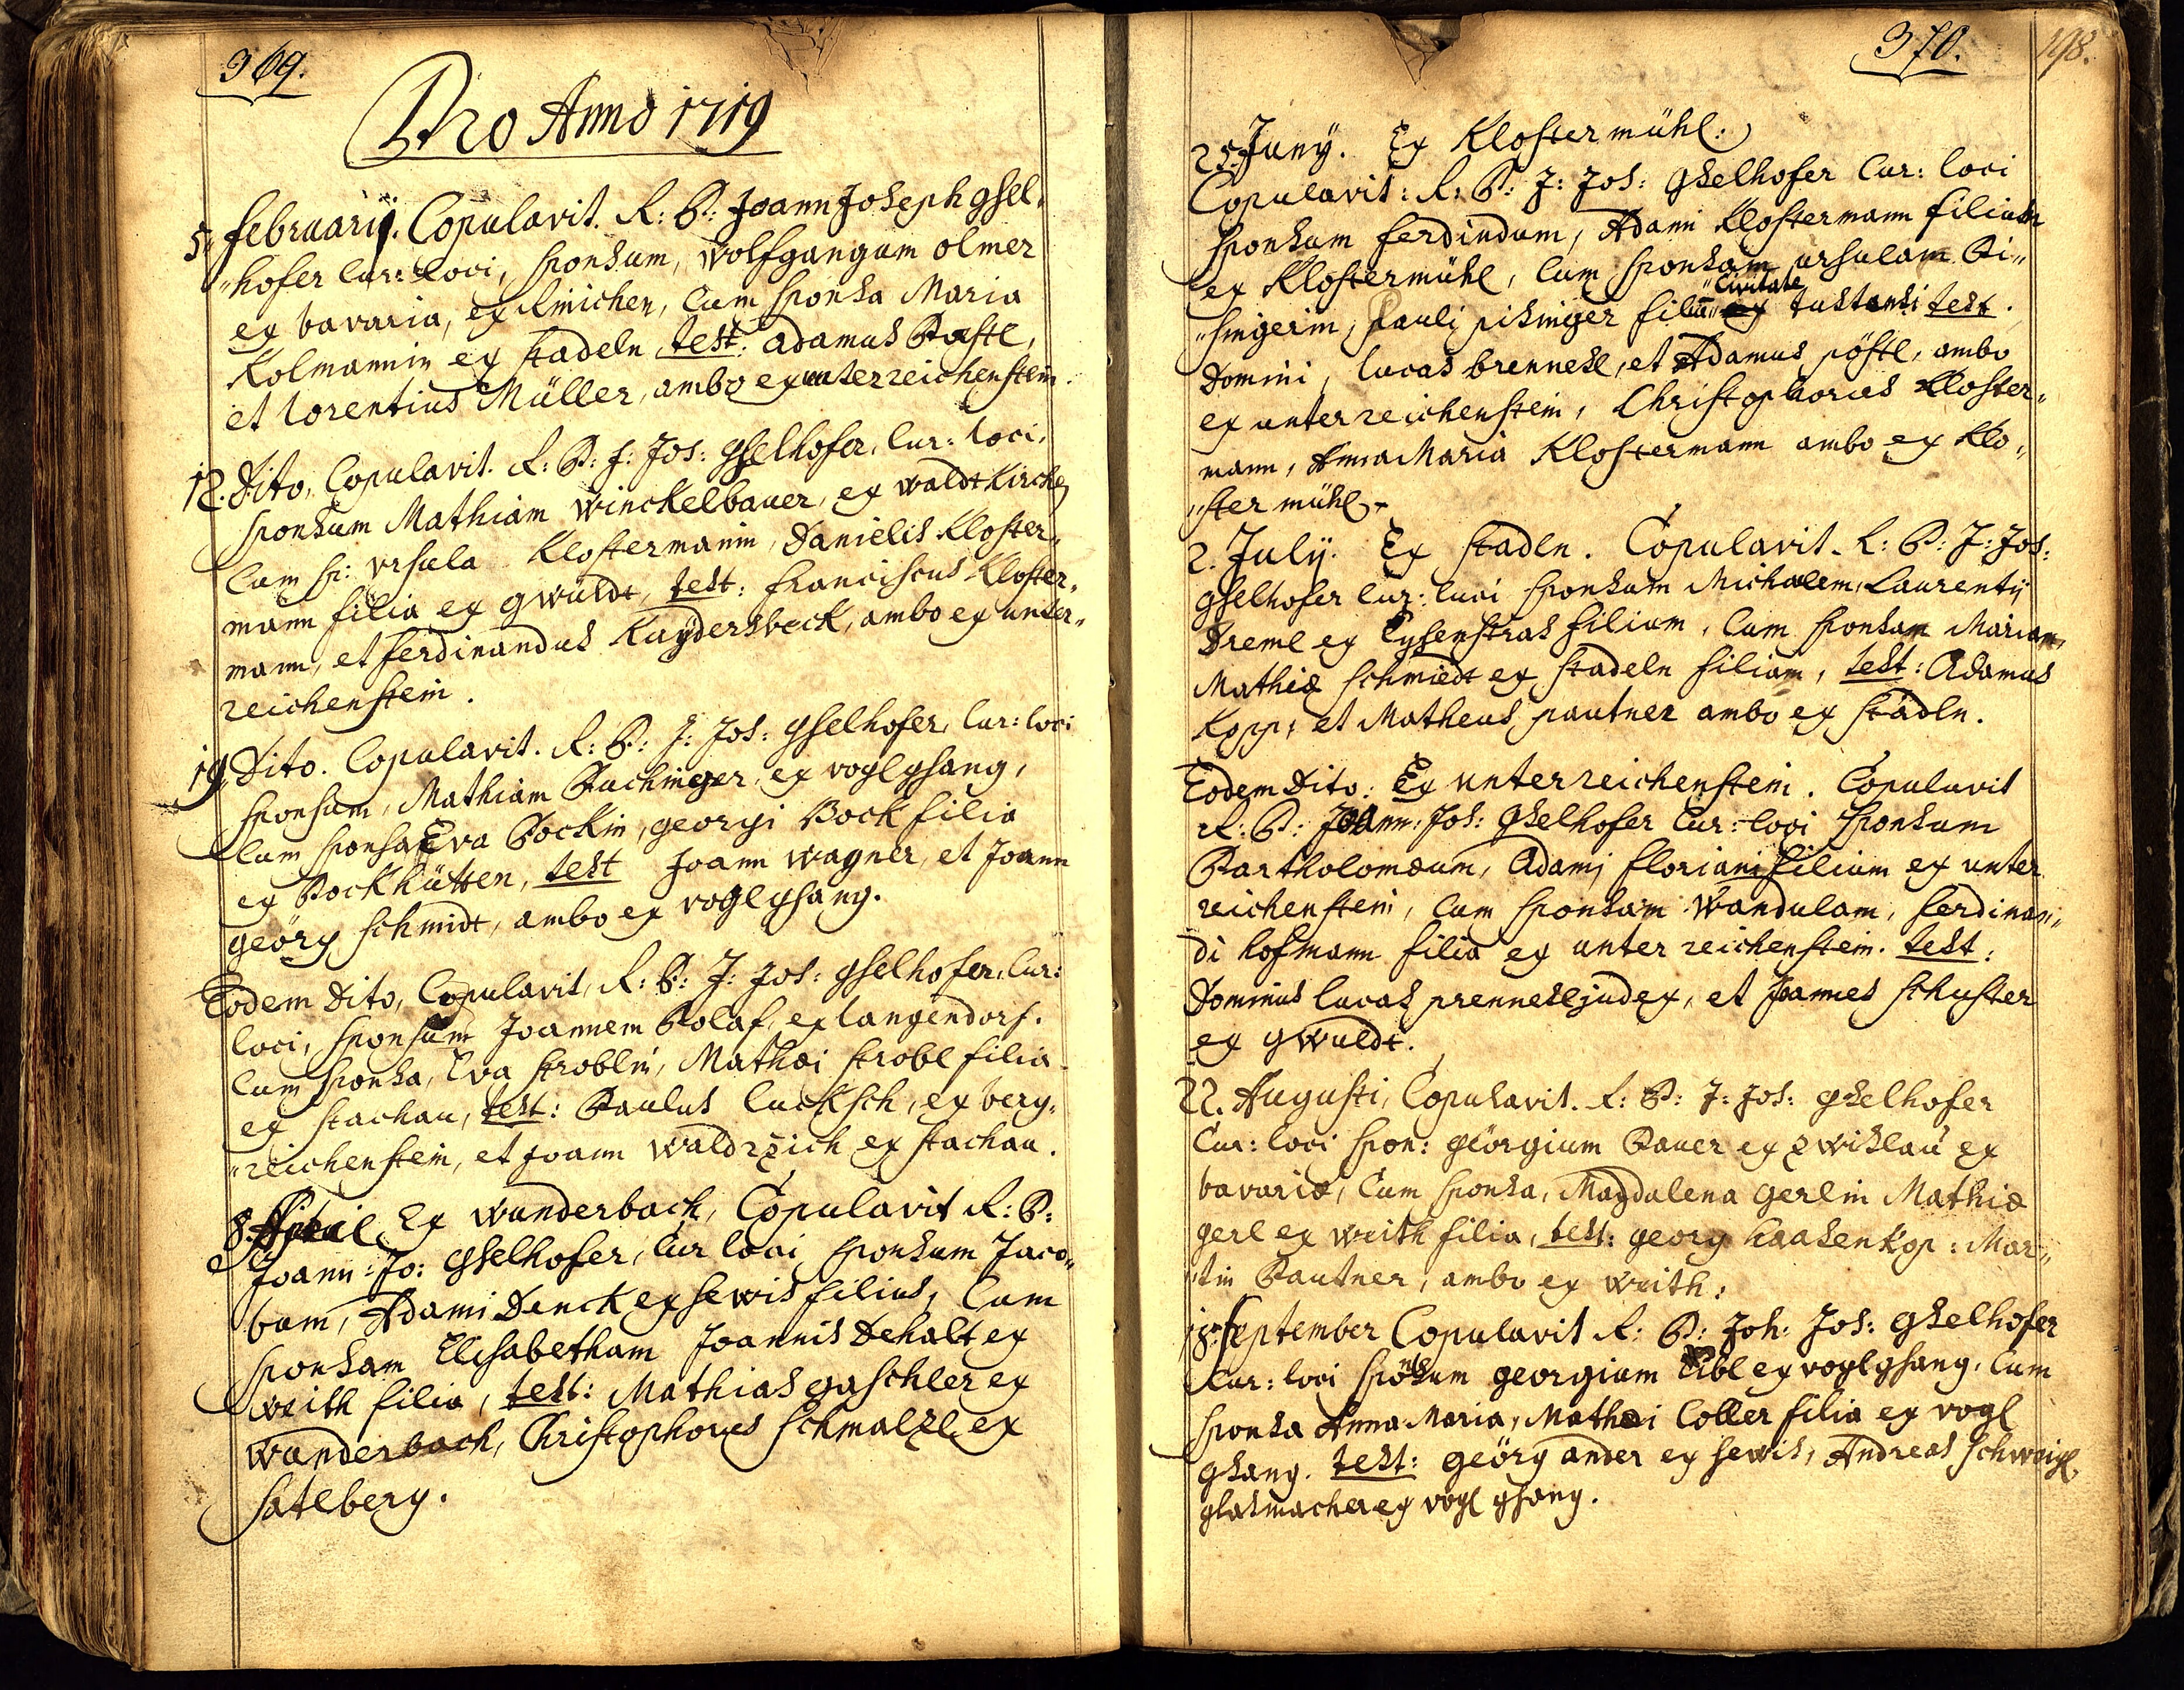 369.
Pro Anno 1719
5. februarij. Copulavit. R: P: Joann Joseph gsel„
„hofer Cur: loci, sponsum, wolfgangum olmer
ex bavaria, ex Cum sponsa Maria
Kolmannin ex stadeln test: adamus Postl,
et lorentius Müller, ambo ex unterreichenstein.
12. Dito, Copulavit. R: P: J: Jos: gselhofer, Cur: loci,
sponsum Mathiam winckelbauer, ex waldtkirchen
Cum sp: ursula Klostermanin, Danielis Kloster„
mann filia ex gwuldt, test: franciscus Kloster„
mann, et ferdinandus Kuÿdersbeck, ambo ex unter„
reichenstein.
19. Dito. Copulavit. R: P: J: Jos: gselhofer, Cur: loci
sponsum, Mathiam Puchinger, ex voglgsang,
Cum sponsa Eva Pockin, georgi Bock filia
ex Pockhütten, test Joann wagner, et Joann
geörg schmidt, ambo ex voglgsang.
Eodem Dito, Copulavit, R: P: J: Jos: gselhofer, Cur:
loci, sponsum Joannem Polaf, ex langendorf.
Cum sponsa, Eva stroblin, Mathæi strobl filia
ex stachau, test: Paulus lucksch, ex berg„
„reichenstein, et Joann waldrzich ex stachau.
8. April Ex wunderbach, Copulavit R: P:
Joann: Jo: gselhofer, Cur loci sponsum Jaco„
bum, Adami Denck ex sewis filius, Cum
sponsam Elisabetham Joannis Dehalt ex
weith filia, test: Mathias gaschler ex
wunderbach, Christophorus schmalzl ex
satlberg.
370. 198.
25. Junÿ. Ex Klostermühl:
Copulavit: R: P: J: Jos: gselhofer Cur: loci
sponsum ferdindum, Adami Klostermann filium
ex Klostermühl, Cum sponsam ursulam Pi„
„Civitate
„singerin, Pauli pisinger filia ex tustansi test.
Domini, lucas brennesl, et Adamus pöstl, ambo
ex unterreichenstein, Christophorus Kloster„
mann, Anna Maria Klostermann ambo ex Klo„
„ster mühl.
2. July. Ex stadln. Copulavit. R: P: J: Jos:
gselhofer Cur: luci sponsum Michalem, Laurentij
Dreml ex Eysenstras filium, Cum sponsam Mariam,
Mathiæ schmiedt ex stadeln filiam, test: Adamus
Kopp, et Matheus pautner ambo ex stadln.
Eodem Dito: Ex unterreichenstein. Copulavit
R: P: Joann: Jos: gselhofer Cur: loci sponsum
Partholomæum, Adami floriani filium ex unter
reichenstein, Cum sponsam Wandulam, ferdinan„
di hofmann filia ex unter reichenstein. test:
Dominus lucas prennesl judex, et Joannes schuster
ex gwuldt.
22. Augusti, Copulavit. R: P: J: Jos: gselhofer
Cur: loci spon: geörgium Pauer ex zwislau ex
bavariæ, Cum sponsa, Magdalena gerlin Mathiæ
gerl ex weith filia, test: georg haasenkop: Mar„
„tin Pautner, ambo ex weith:
18. September Copulavit R: P: Joh: Jos: gselhofer
Cur: loci sponsum georgium Eibl ex voglgsang, Cum
sponsa Anna Maria, Mathæi Coller filia ex vogl
gsang. test: geörg ander ex sewis, Andreas schweigl,
glasmacher ex vogl gsang.